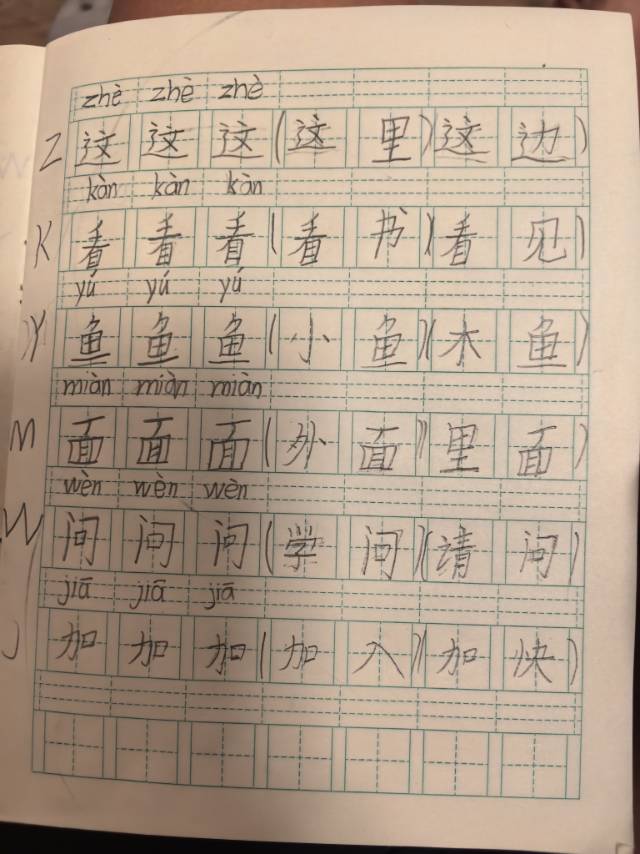 zhè zhè zhè
Z 这 这 这 (这 里) 这 边)
kàn kàn kàn
K 看 看 看 (看 书)(看 见)
yú yú yú
Y 鱼 鱼 鱼 (小 鱼)(木 鱼)
miàn miàn miàn
M 面 面 面 (外 面)(里 面)
wèn wèn wèn
W 问 问 问 (学 问)(请 问)
jiā jiā jiā
J 加 加 加 (加 入)(加 快)